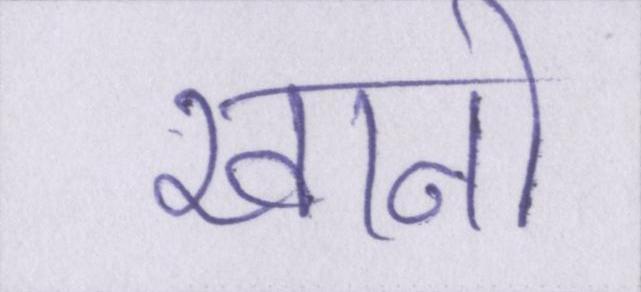 खानो